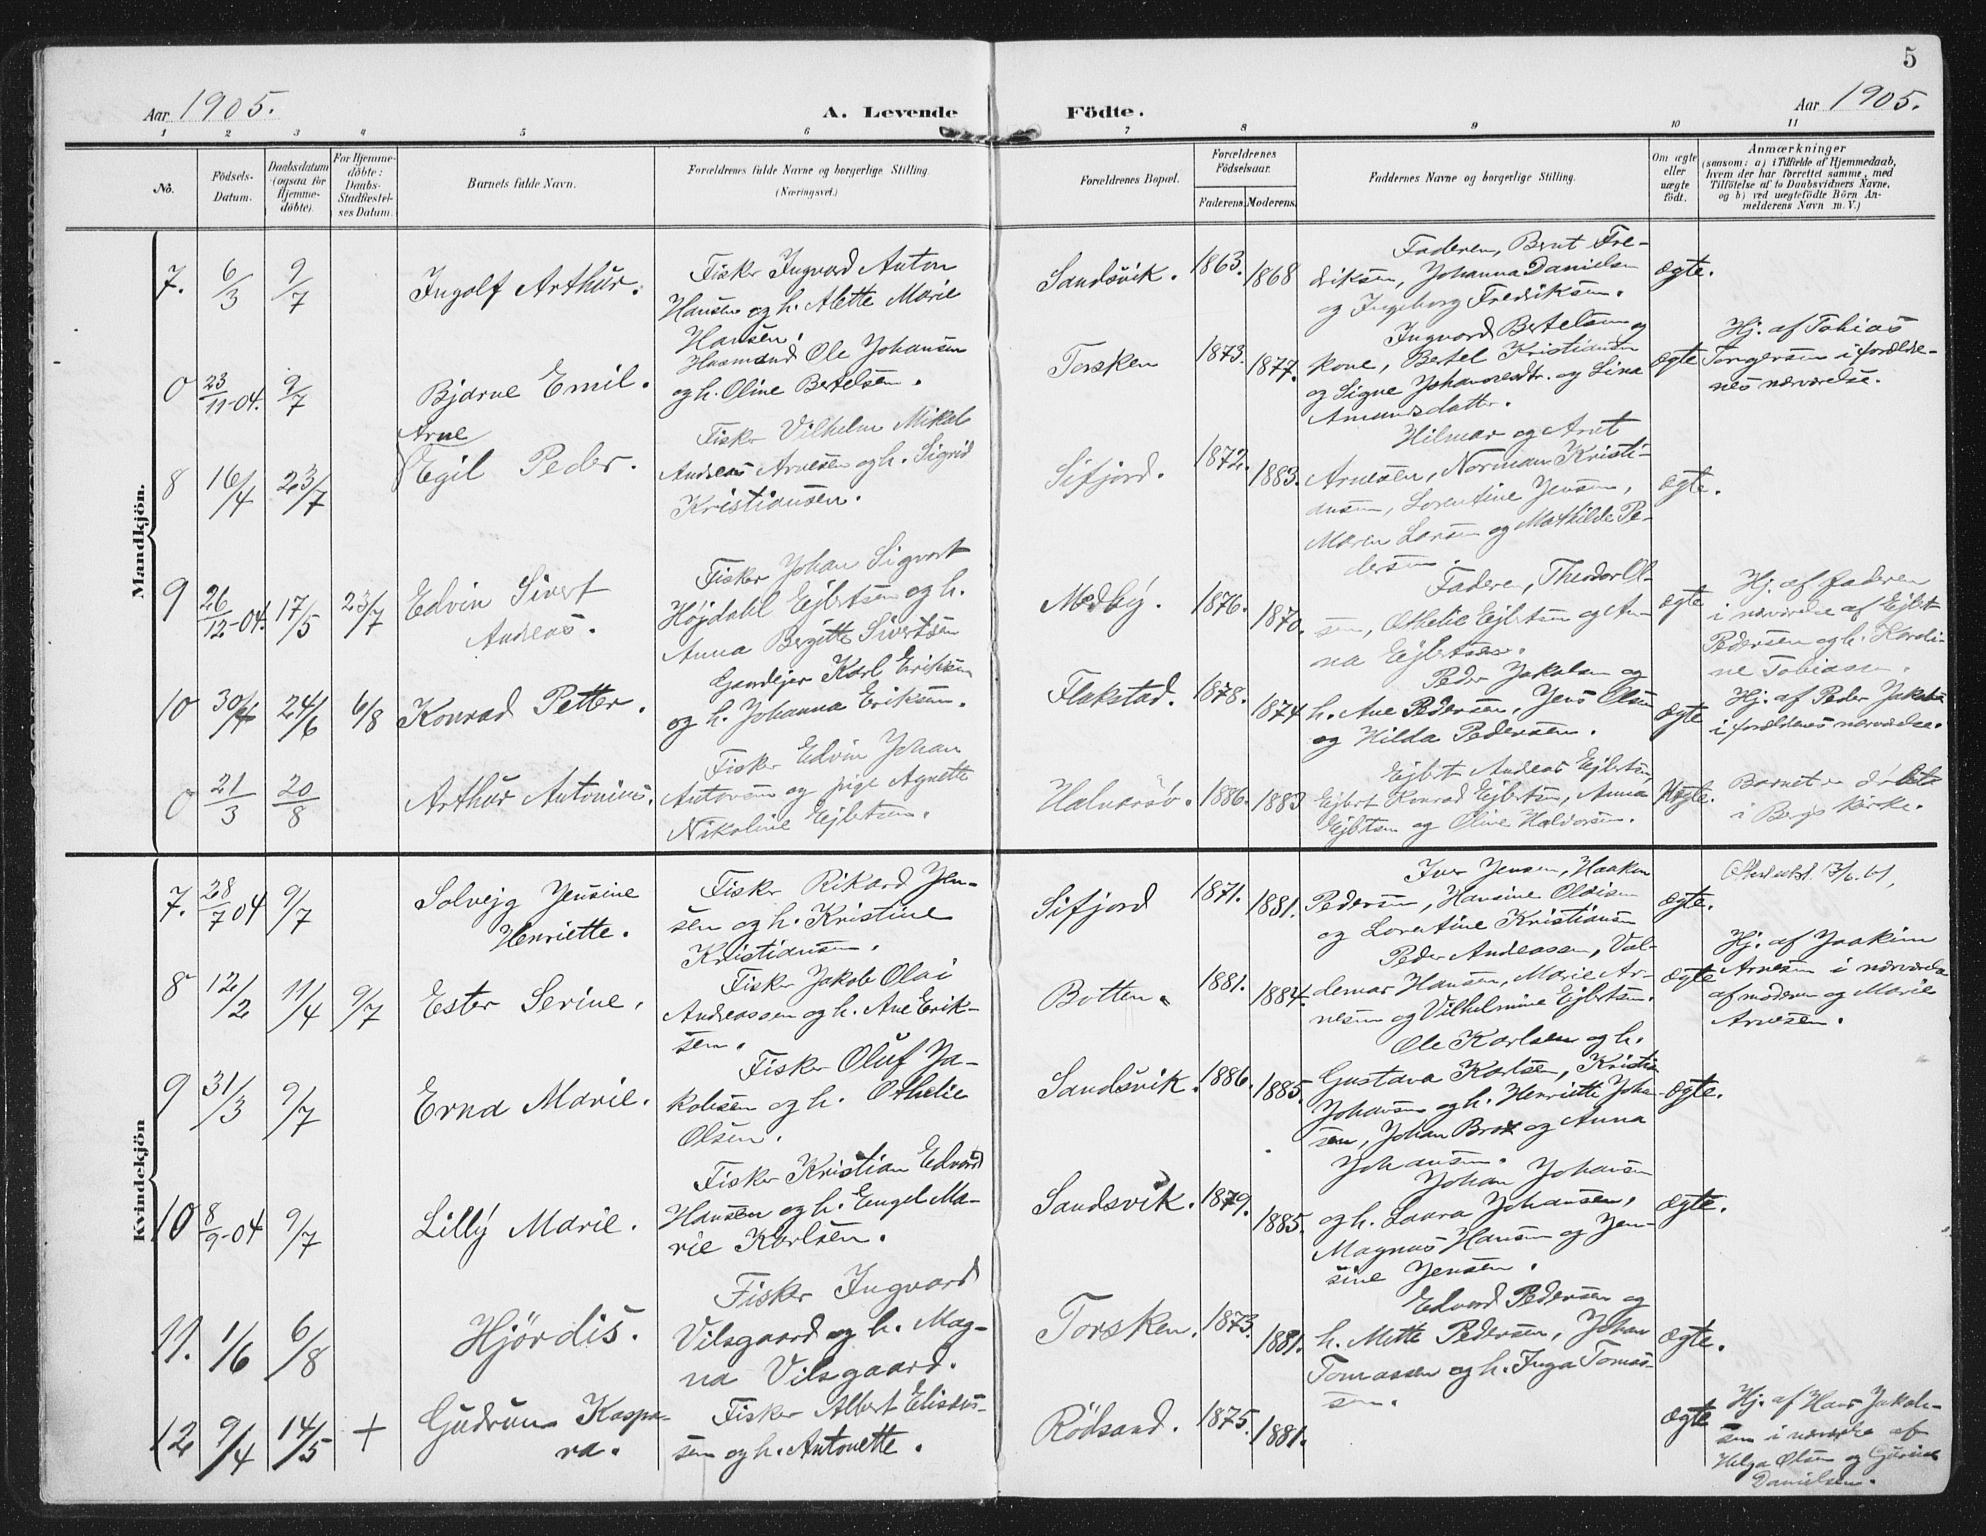 5
Aar 1905.
A. Levende Födte.
Aar 1905.
1 2 3 4 5 6 7 8 9 10 11
No.
Födsels-Datum.
Daabsdatum (ogsaa for Hjemme-döbte).
For Hjemme-döbte: Daabs-Stadfæstel-ses Datum.
Barnets fulde Navn.
Forældrenes fulde Navne og borgerlige Stilling. (Næringsvei.)
Forældrenes Bopæl.
Forældrenes Födselsaar.
Faderens. Moderens.
Faddernes Navne og borgerlige Stilling.
Om ægte eller uægte födt.
Anmærkninger
(saasom: a) i Tilfælde af Hjemmedaab,
hvem der har forrettet samme, med
Tilföielse af to Daabsvidners Navne,
og b) ved uægtefödte Börn An-
melderens Navn m. V.)
Mandkjön.
7. 6/3 9/7 Ingolf Arthur.
Fisker Ingvard Anton
Hansen og h. Alette Marie
Hansen.
Sandsvik. 1863. 1868
Faderen, Bernt Fre-
driksen, Johanna Danielsen
og Ingeborg Fredriksen.
ægte.
0 23/11-04. 9/7 Bjarne Emil.
Husmand Ole Johansen
og h. Oline Bertelsen.
Torsken 1873. 1877.
Ingvard Bertelsen og
kone, Bertel Kristiansen
og Signe Johannesdtr. og Lina
Amundsdatter.
ægte
Hj. af Tobias
Tongersen i forældre-
nes nærværelse.
8 16/4 23/7 Arne
Egil Peder.
Fisker Vilhelm Mikal
Andreas Arnesen og h. Sigrid
Kristiansen.
Sifjord. 1872. 1883.
Hilmar og Arnt
Arnesen, Norman Kristi-
ansen, Lorentine Jensen,
Maren Larsen og Mathilde Pe-
dersen.
ægte.
9 26/12-04. 17/5 23/7 Edvin Sivert
Andreas.
Fisker Johan Sigvart
Højdahl Ejbertsen og h.
Anna Bergitte Sivertsen
Medby. 1876. 1870.
Faderen, Theodor Ol-
sen, Othelie Ejbertsen og An-
na Ejbertsen.
ægte
Hj. af faderen
i nærværelse af Ejbert
Pedersen og h. Kardi-
ne Tobiassen.
10 30/4 24/6 6/8 Konrad Petter.
Gaardejer Karl Eriksen
og h. Johanna Eriksen.
Flakstad. 1878. 1874
Peder Jakobsen og
h. Ane Pedersen, Jens Olsen
og Hilda Pedersen.
ægte
Hj. af Peder Jakobsen
i forældrenes nærværelse.
0 21/3 20/8 Arthur Antonius.
Fisker Edvin Johan
Antonsen og pige Agnette
Nikoline Ejbertsen.
Halvarsøy. 1886. 1883
Ejbert Andreas Ejbertsen,
Ejbert Konrad Ejbertsen, Anna
Ejbertsen og Oline Haldorsen.
Uægte.
Barnet er døbt
i Bergs kirke.
Kvindekjön
7. 28/7 04 9/7 Solvejg Jensine
Henriette.
Fisker Rikard Jen-
sen og h. Kristine
Kristiansen.
Sifjord 1871. 1881.
Iver Jensen, Haakon
Pedersen, Hansine Olaisen
og Lorentine Kristiansen
ægte.
8 12/2 11/4 9/7 Ester Serine,
Fisker Jakob Olai
Andreassen og h. Ane Erik-
sen.
Botten. 1881. 1884.
Peder Andreassen, Val-
demar Hansen, Marie Ar-
nesen og Vilhelmine Ejbertsen.
ægte
Hj. af Joakim
Arnesen i nærværelse
af moderen og Marie
Arnesen.
9 31/3 9/7 Erna Marie.
Fisker Oluf Ja-
kobsen og h. Othelie
Olsen.
Sandsvik. 1886. 1885.
Ole Karlsen og h.
Gustava Karlsen, Kristian
Johansen og h. Henriette Johan-
sen, Johan Brox og Anna
Johansen.
ægte.
10 8/9-04 9/7 Lilly Marie.
Fisker Kristian Edvard
Hansen og h. Engel Ma-
rie Karlsen.
Sandsvik. 1879. 1885.
Johan Johansen
og h. Laura Johansen,
Magnus Hansen og Jen-
sine Jensen.
ægte.
11. 1/6 6/8 Hjördis.
Fisker Ingvard
Vilsgaard og h. Mag-
na Vilsgaard.
Torsken. 1873. 1881.
Edvard Pedersen og
h. Mette Pedersen, Johan
Tomassen og h. Inga Tomas-
sen.
ægte.
12 9/4 14/5 + Gudrun Kaspa-
ra.
Fisker Albert Eliseus-
sen og h. Antonette.
Rödsand. 1875. 1881.
ægte
Hj. af Hans Jakob-
sen i nærværelse af
Helga Olsen og
Danielsen.